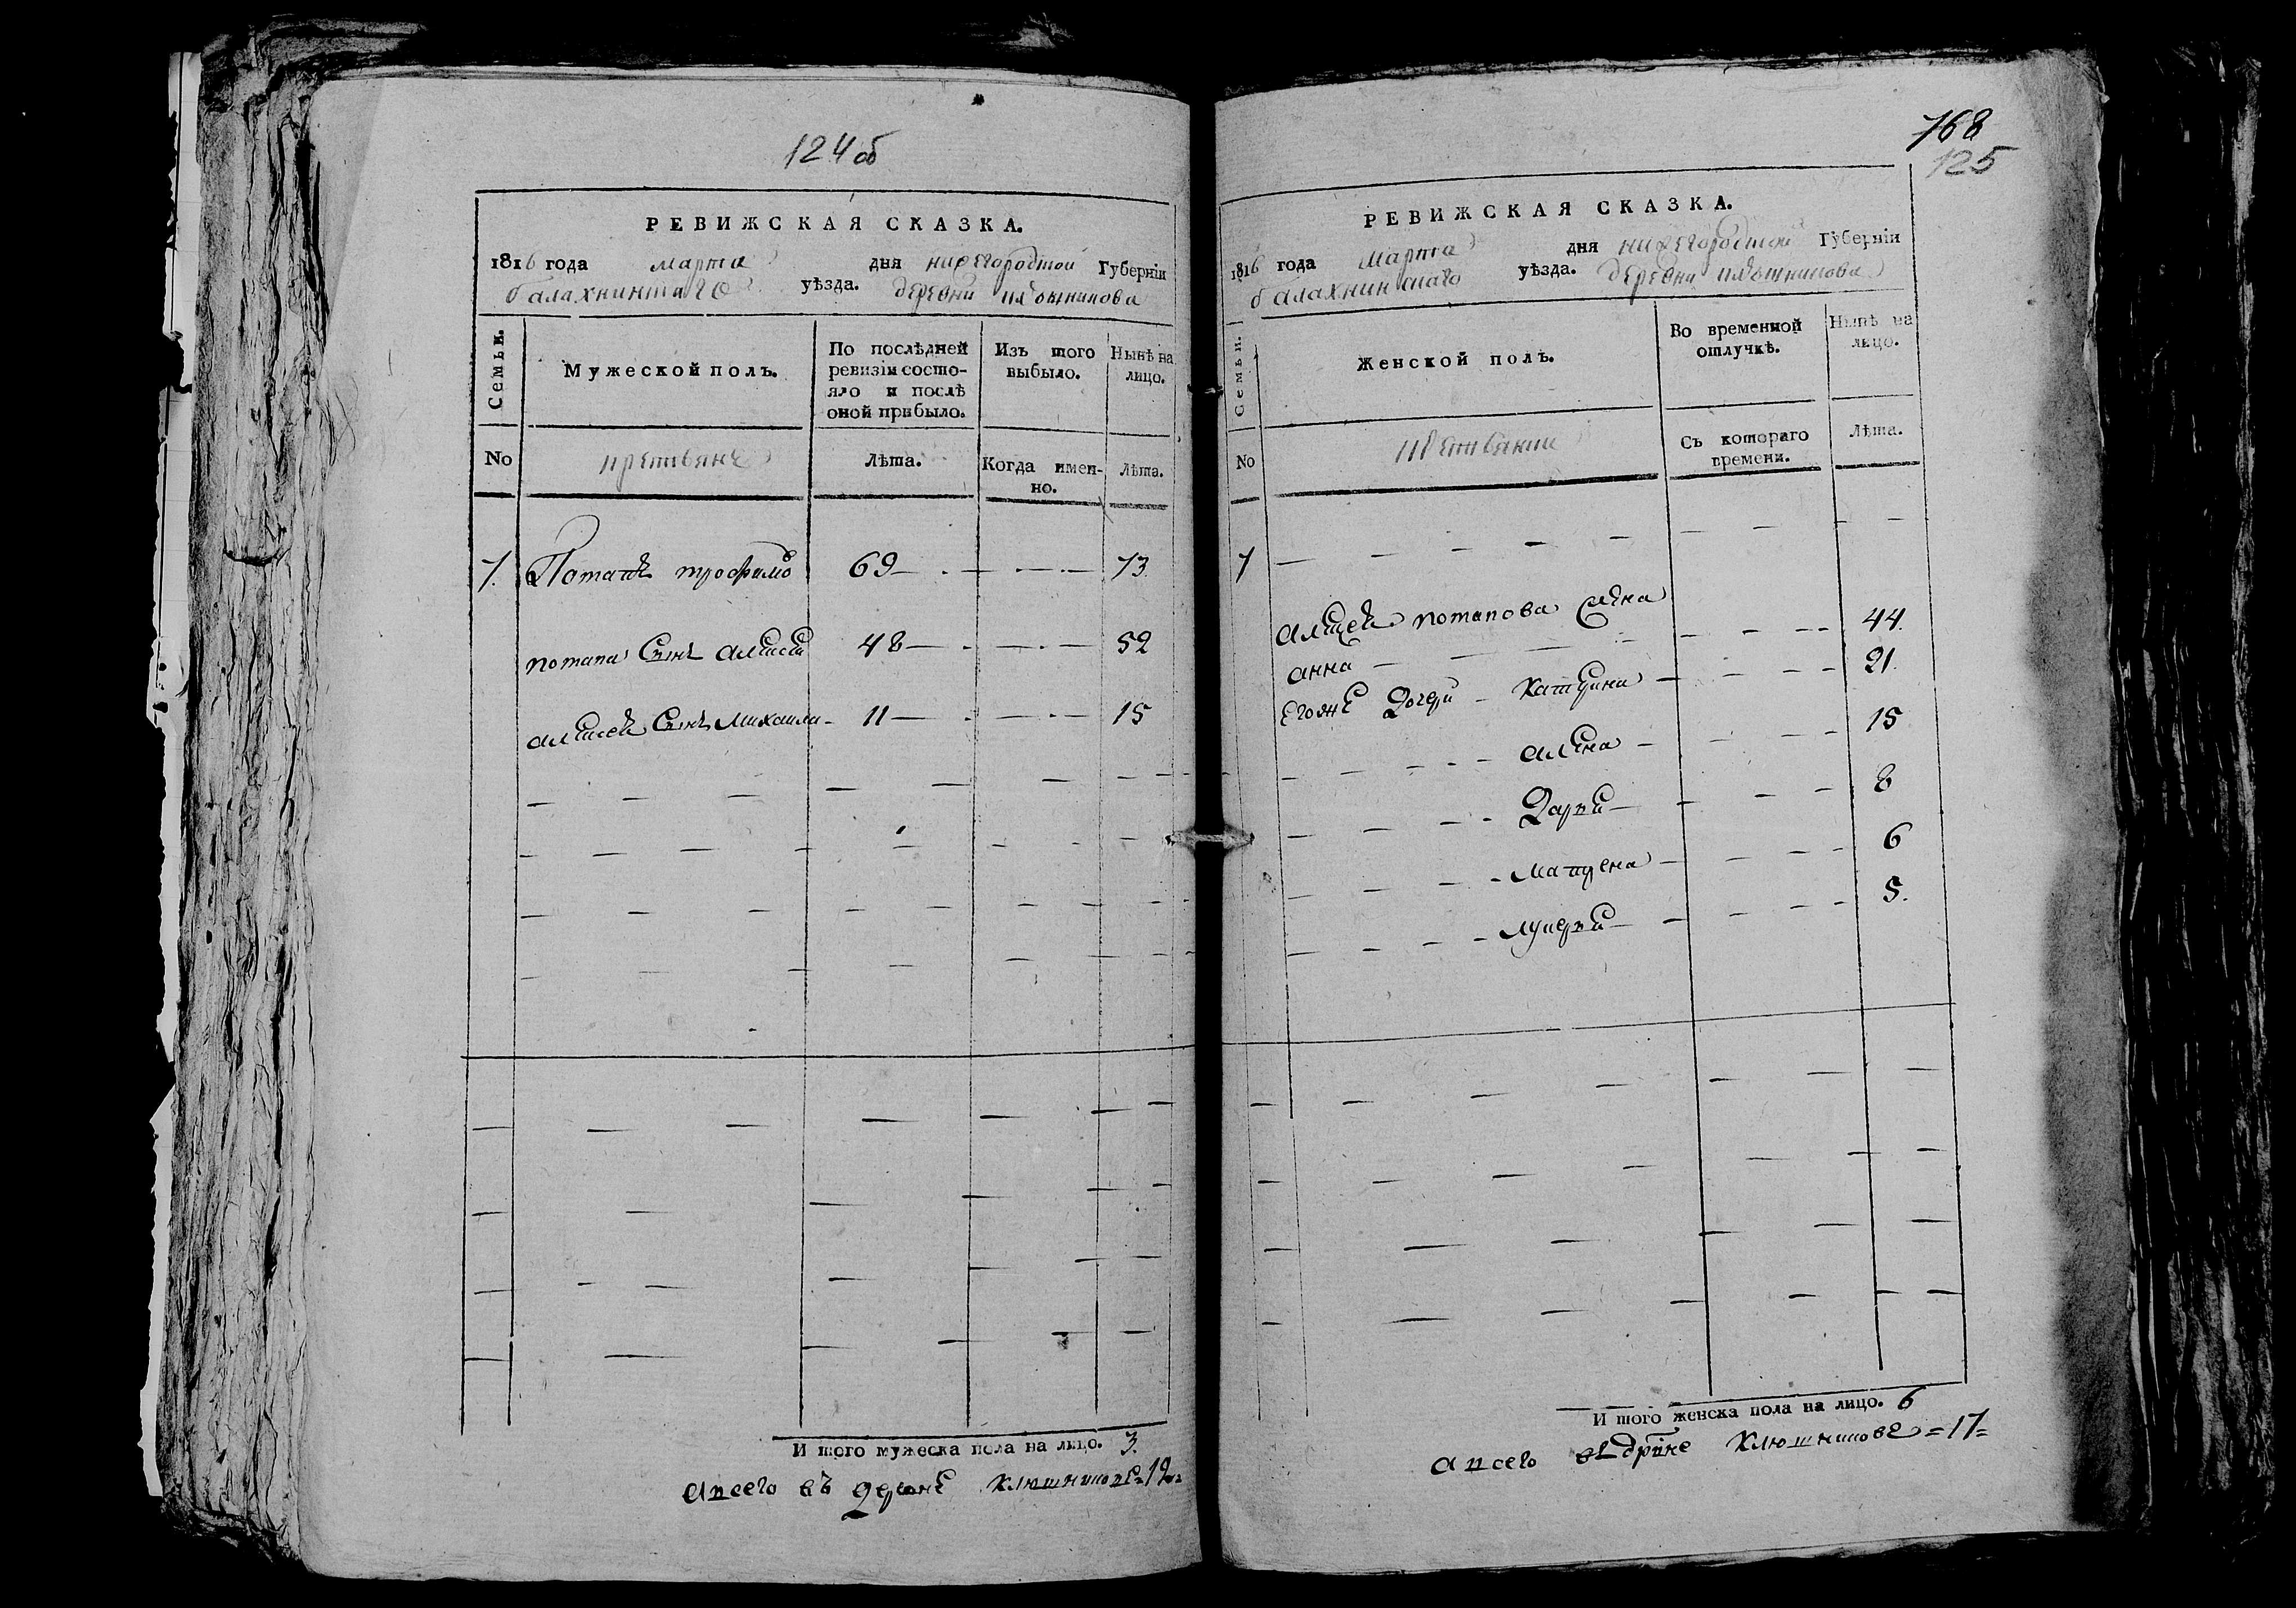 124 об
РЕВИЖСКАЯ СКАЗКА.
1816 года марта дня нижегородской Губерніи
балахнинскаго уѣзда. деревни клюшникова
Семьи.
Мужеской полъ.
По послѣдней ревизіи состояло и послѣ оной прибыло.
Изъ того выбыло.
Нынѣ на лицо.
No
крестьяне
Лѣта.
Когда именно.
Лѣта.
7. Потапъ трофимо 69 73.
потапа Сынъ алексеи 48 52
алексея Сынъ Михаила 11 15
И того мужеска пола на лицо. 3.
а всего въ дерев͠не Клюшникове
768
125
РЕВИЖСКАЯ СКАЗКА.
1816 года марта дня нижегородской Губерніи
балахнинскаго уѣзда. деревни клюшникова
Семьи.
Женской полъ.
Во временной отлучкѣ.
Нынѣ на лицо.
No
Съ котораго времени.
Лѣта.
7
алексея потапова Жена
анна 44.
Егоже Дочери Катерина 21.
алена 15
Дарья 8
матрена 6
лукерья 5.
И того женска пола на лицо. 6
а всего въ дрвне Клюшникове = 17 =